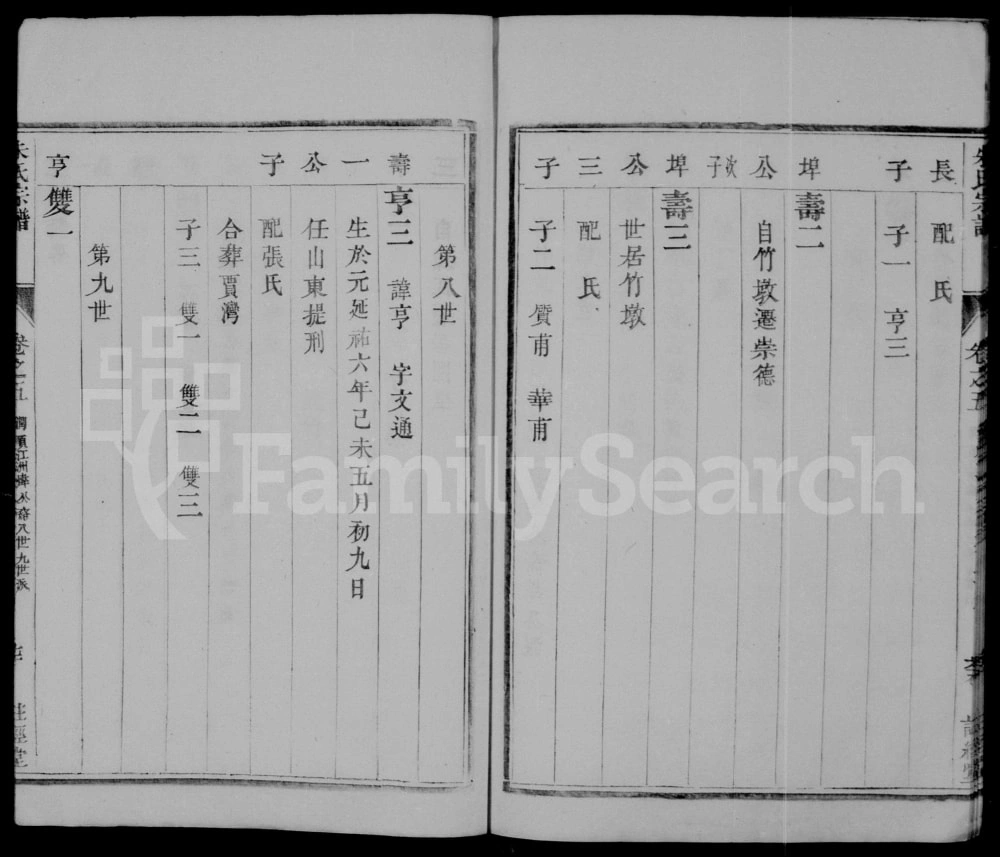 長 配 氏
子 子一 亨三
埠 壽二
公 自竹墩遷崇德
次子
埠 壽三
公 世居竹墩
三 配 氏
子 子二 質甫 華甫
第八世
壽 亨三 諱亨 字文通
一 生於元延祐六年己未五月初九日
公 任山東提刑
子 配張氏
合葬賈灣
子三 雙一 雙二 雙三
第九世
亨 雙一
氏宗譜
卷之五
八世九世派
FamilySearch